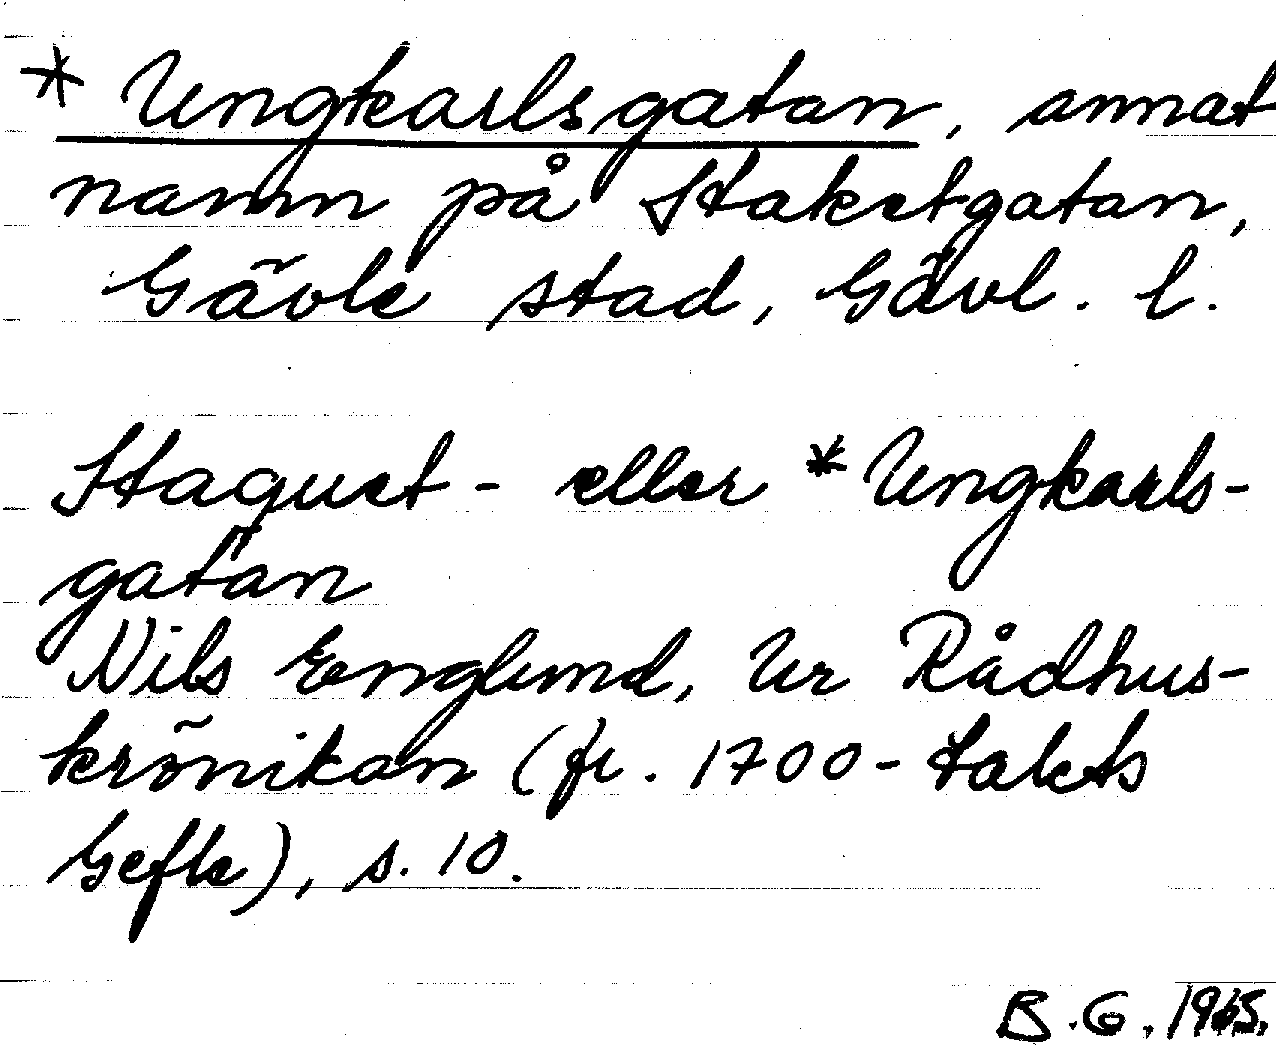 * Ungkarlsgatan, annat
namn på Staketgatan,
Gävle stad, Gävl. l.
Staquet- eller * Ungkarls-
gatan
Nils Englund, Ur Rådhus-
krönikan (fr. 1700-talets
Gefle), s. 10.
B.G. 1965.